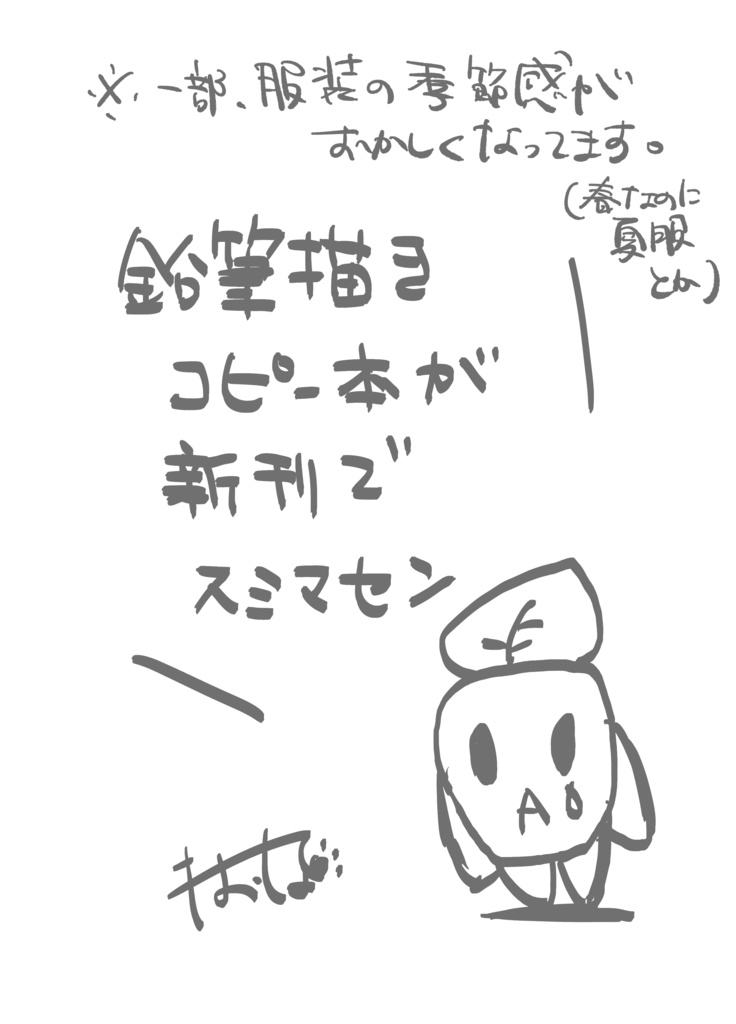 ※一部、服装の季節感が
おかしくなってます。
(春なのに
夏服
とか)
鉛筆描き
コピー本が
新刊で
スミマセン